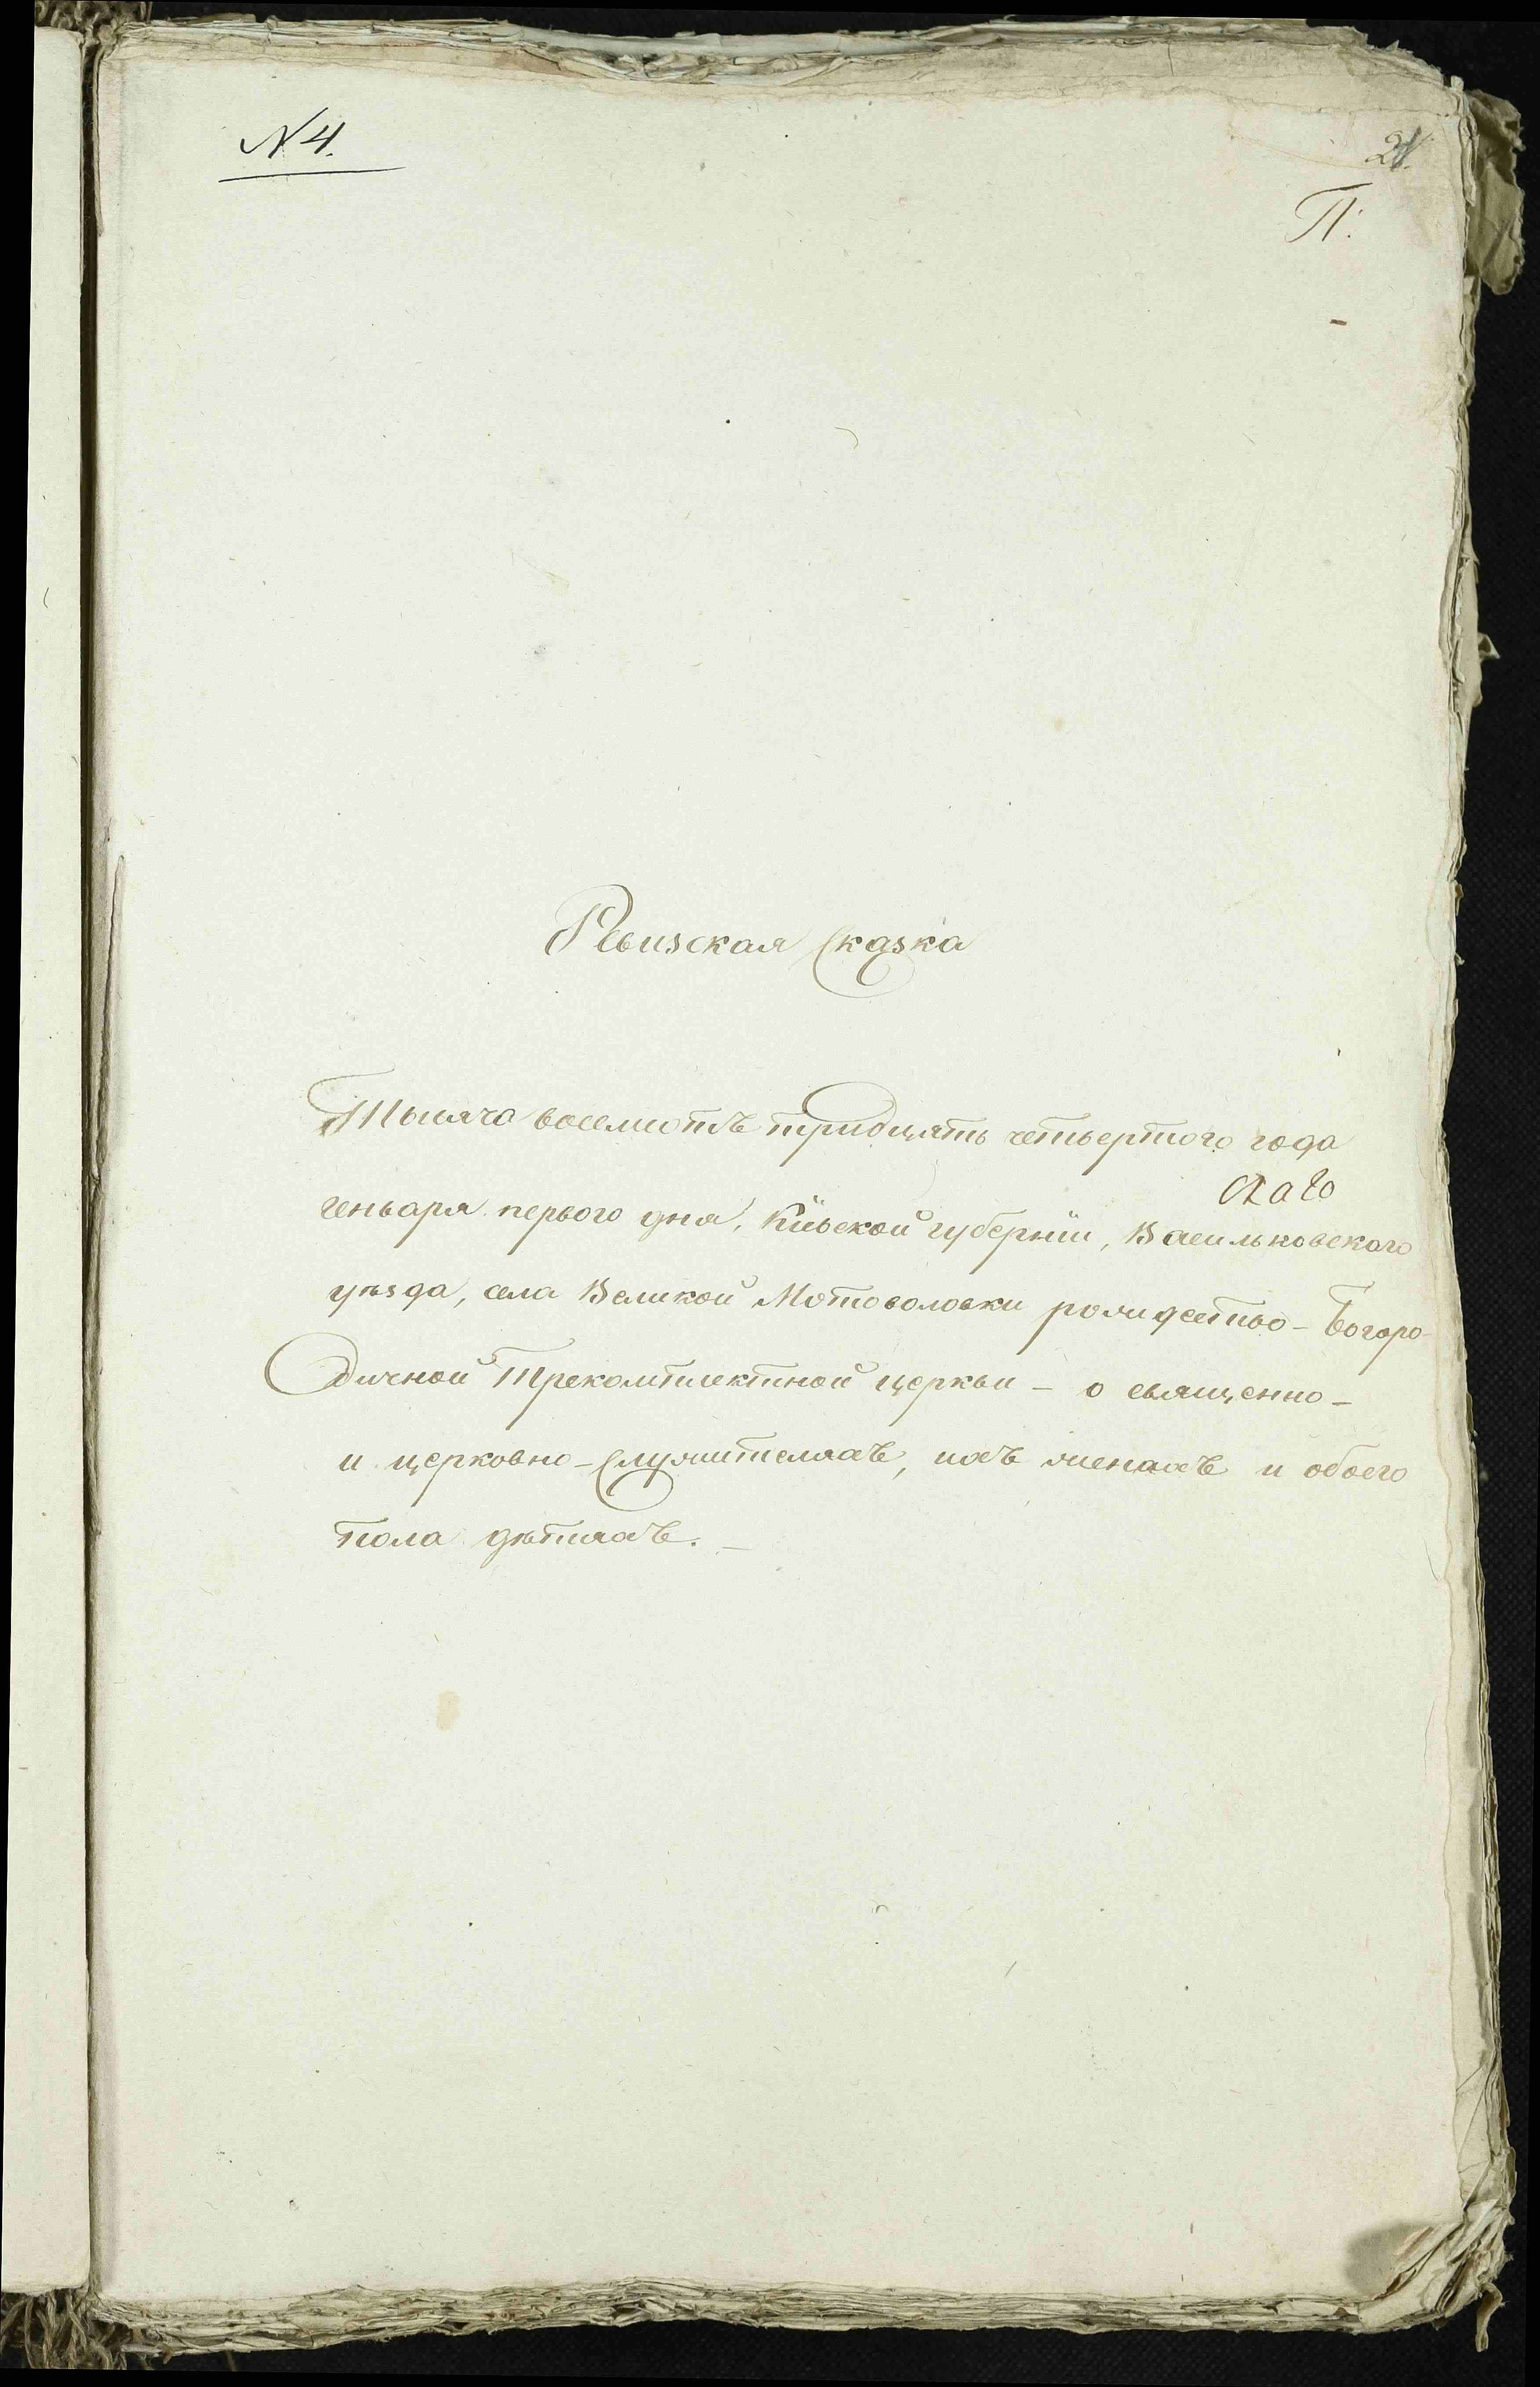 № 4.
21.
П:
Ревизская Сказка
Тысяча восемсотъ тридцять четвертого года
генваря первого дня, Кіевской губерніи, Васильковского
уѣзда, села Великой Мотовиловки рождество-Богоро-
дичной Трекомплектной церкви - о священно-
и церковно-служителяхъ, ихъ женахъ и обоего
пола дѣтяхъ. -